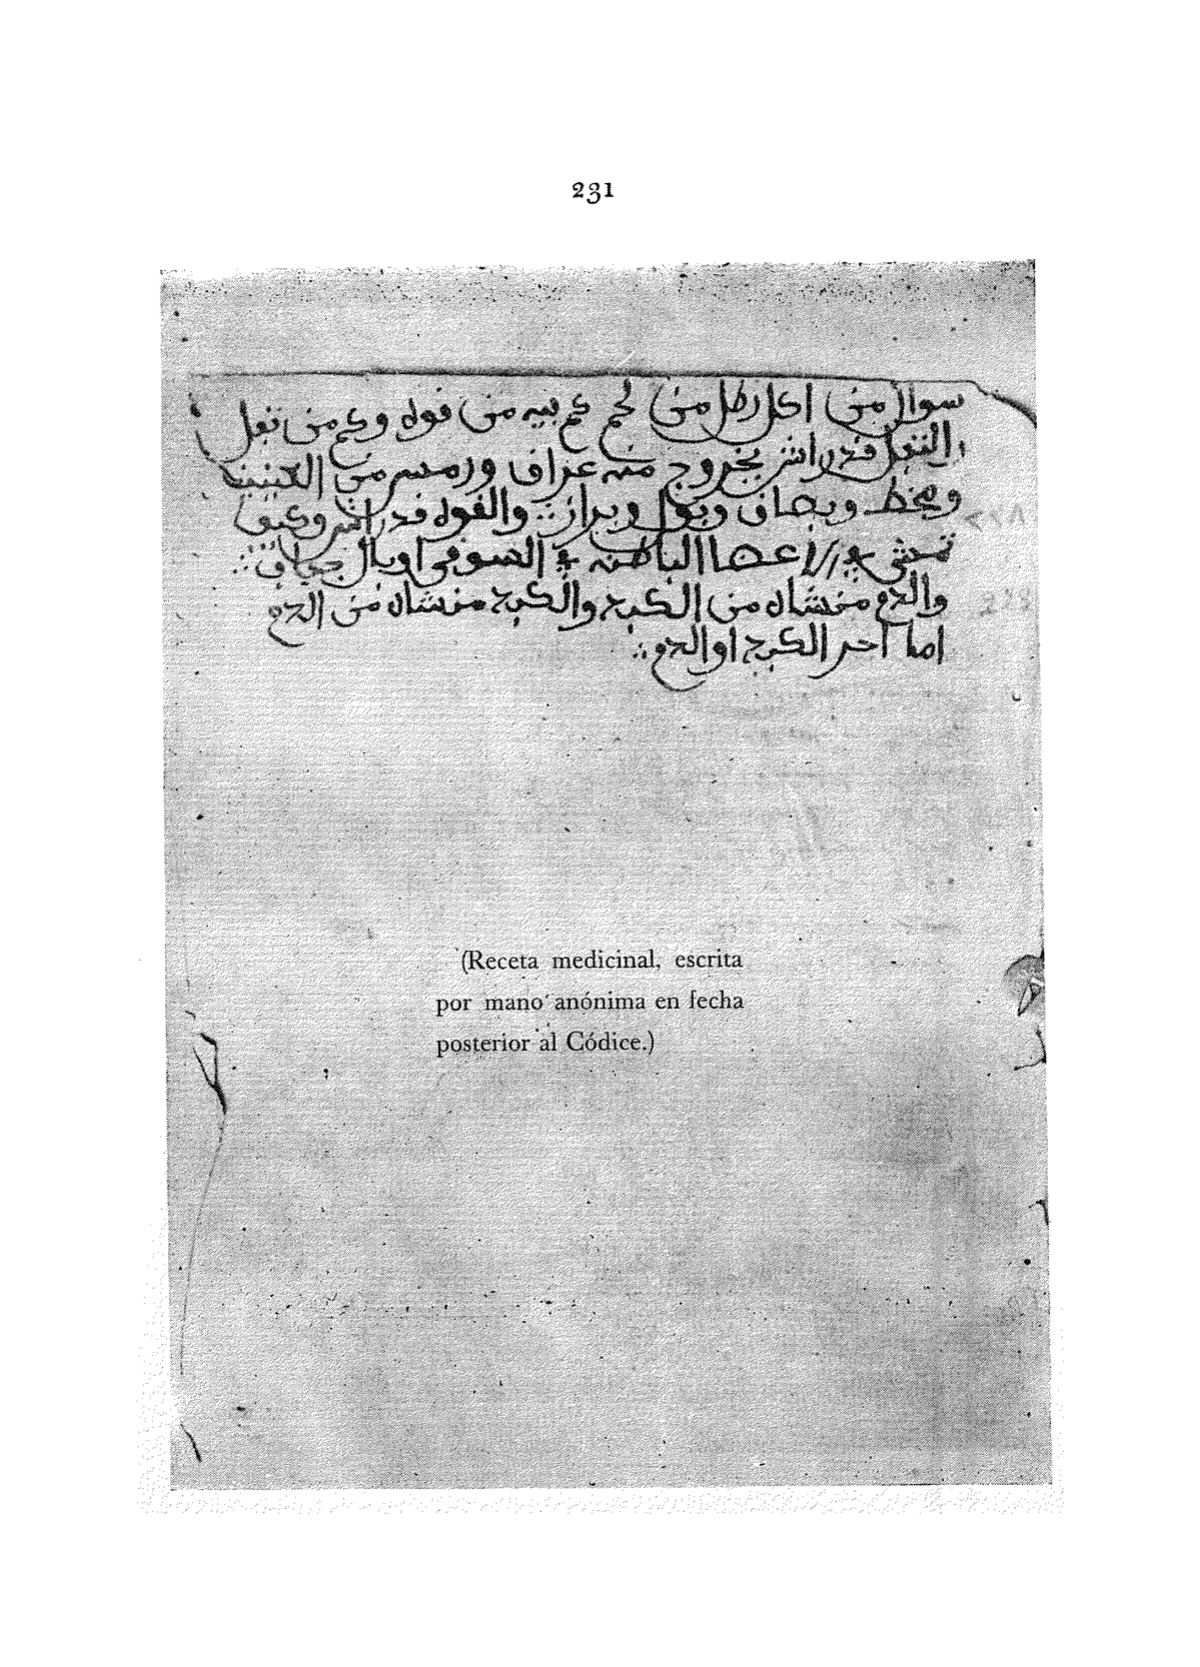 231
سوال من اكل رطل من لحم كم بيه من قوه وكم من تفل
التفل قدراش يخروج منه عراق ورمس من العينين
ومخط وبصاق وبول وبراز والقوه قدراش وكيف
تمشي الاعضا الباطنه السوفى اوبال
والدم منشاه من الكبد والكبد منشاه من الدم
اما اخر الكبد او الدم
(Receta medicinal, escrita
por mano anónima en fecha
posterior al Códice.)